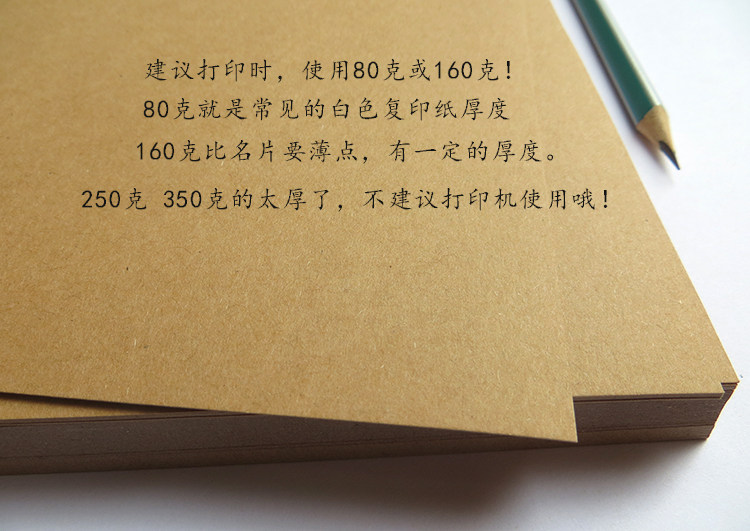 建议打印时，使用80克或160克！
80克就是常见的白色复印纸厚度
160克比名片要薄点，有一定的厚度。
250克 350克的太厚了，不建议打印机使用哦！